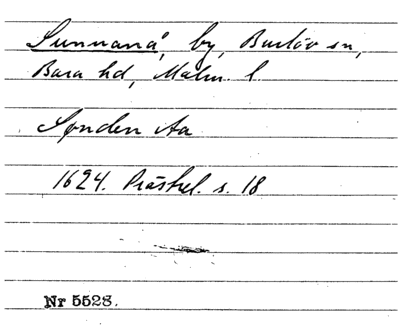 Sunnanå, by, Burlöv sn,
Bara hd, Malm. l
Sønden Aa
1624. Prästrel. s. 18
Nr 5528.